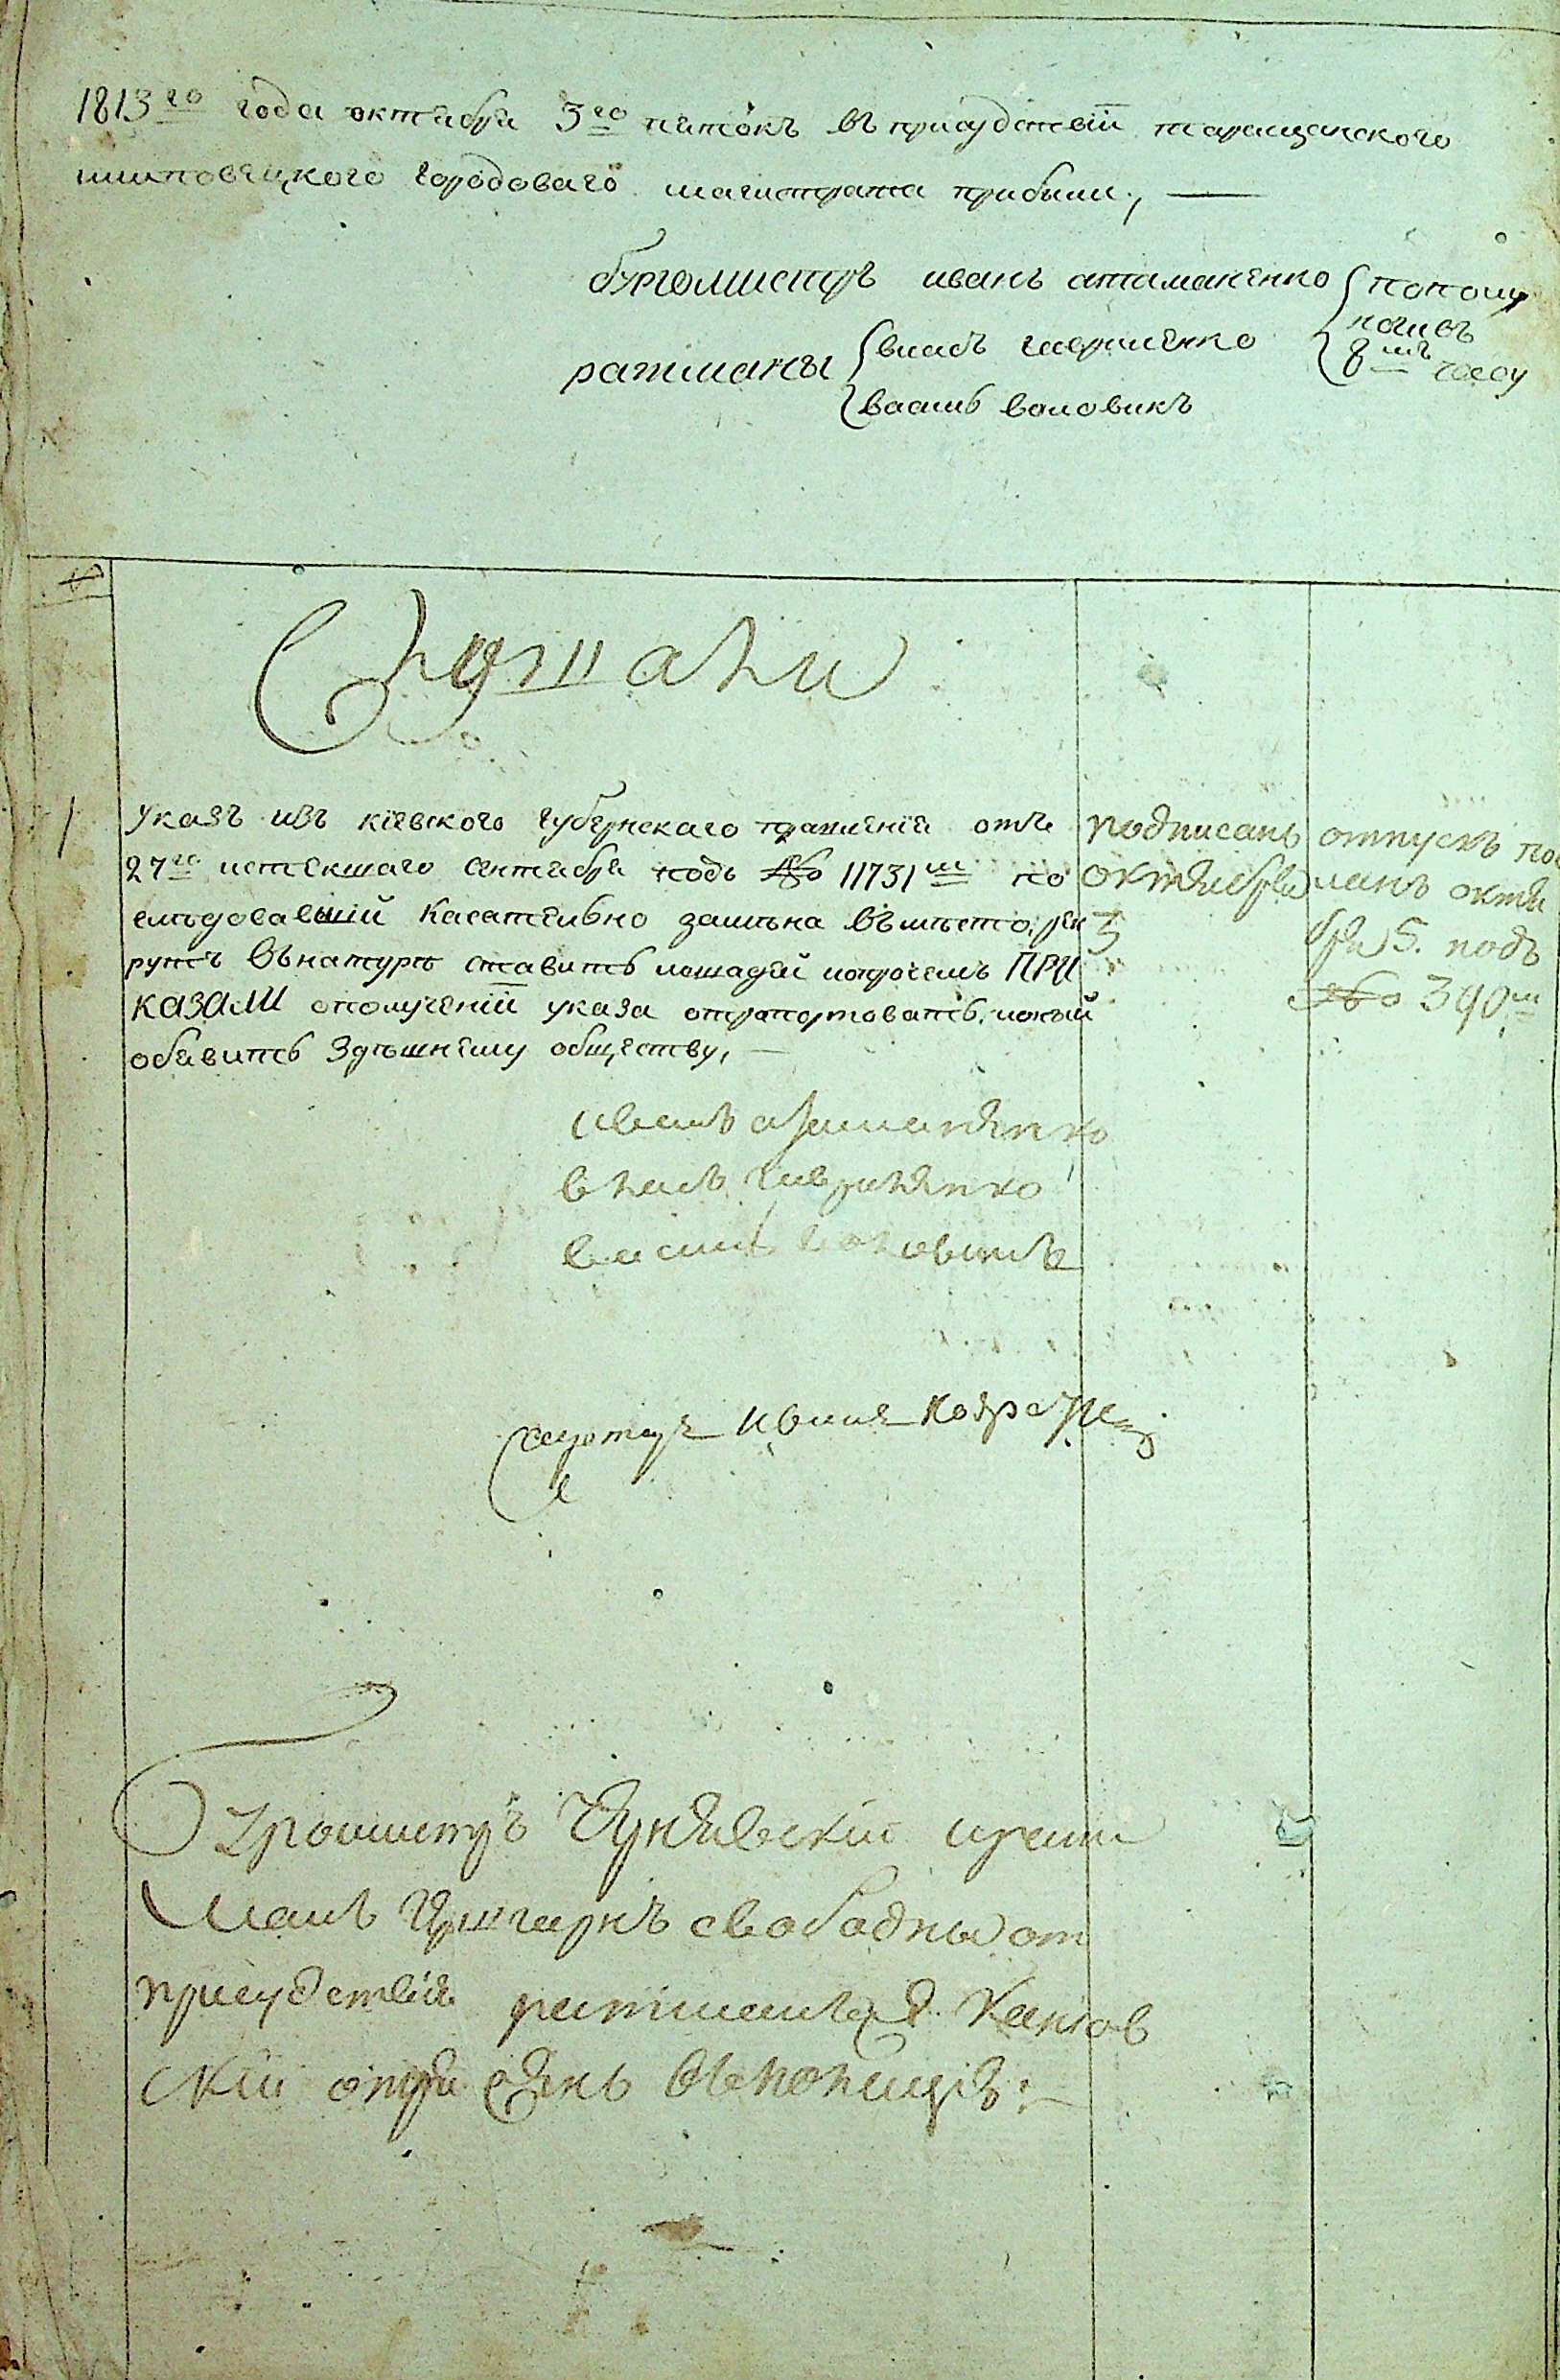 1813го года октября 3го пятокъ въ присудствїи таращанского
шляповецкого городоваго магистрата прибыли,
бургомистръ иванъ атаманенко
пополу
ночивъ
8мъ часу
ратманы
власъ гавриленко
василь воловикъ
Слушали
1
Указъ изъ кїевского губернскаго правленїя отъ
27го истекшаго сентября подъ № 11731м по
слѣдовавшїй касательно замѣна въмѣсто рек
рутъ вънатурѣ ставить лошадей ипрочемъ ПРИ
КАЗАЛИ ополученїи указа отрапортовать, ионый
обявить здѣшнему обществу,
подписанъ
октября
3
отпускъ пос
ланъ октя
бря 5. подъ
№ 390м
иванъ атаманенко
власъ гавриленко
василь воловикъ
секретарь
Бургомистръ ратъ
манъ свободны от
присудствїя ратманъ
скїй